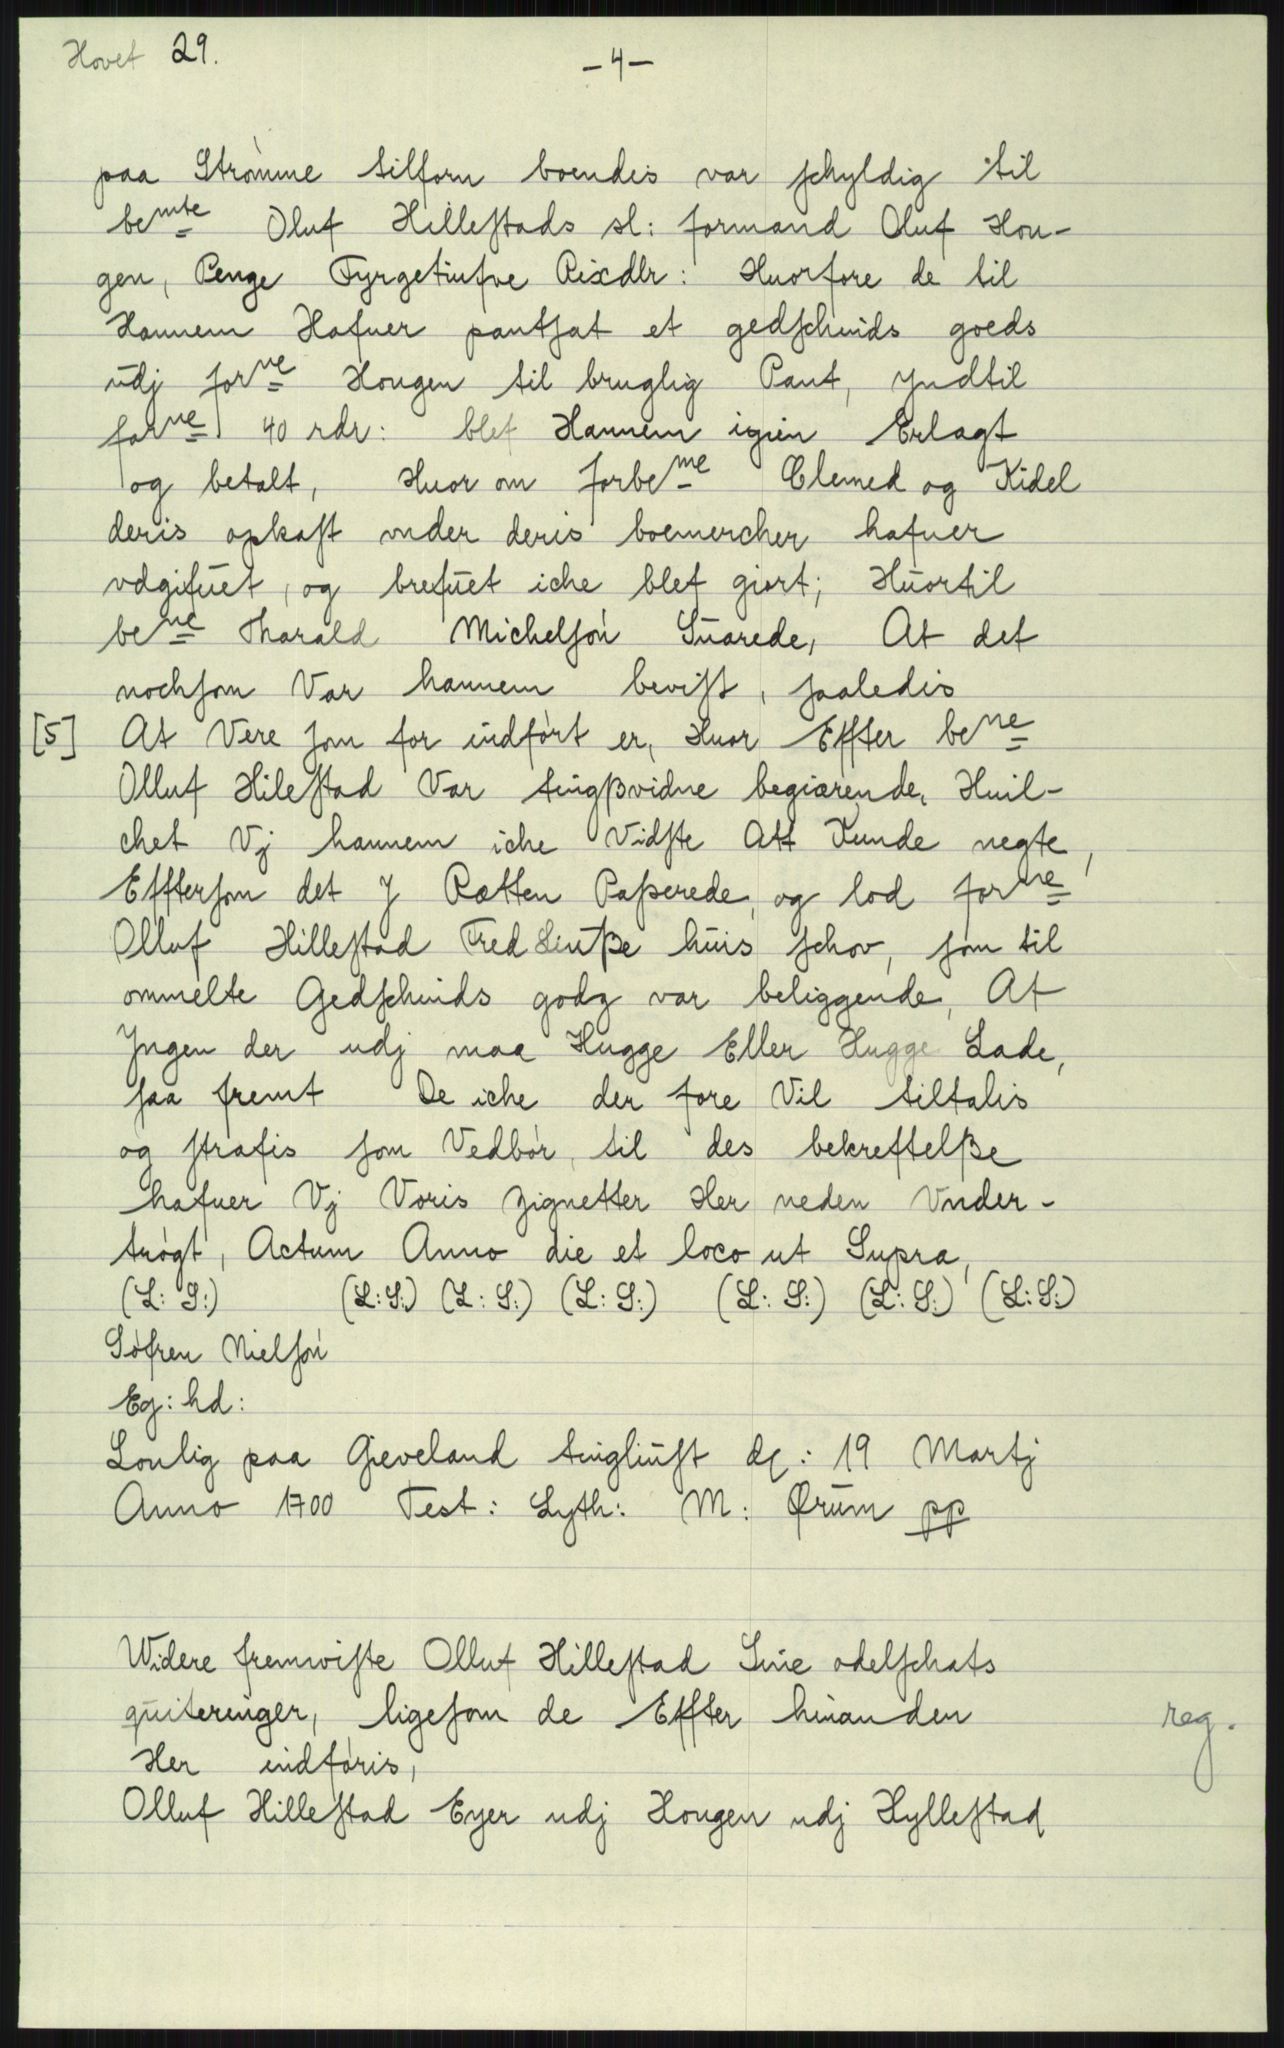 Hovet 29.
-4-
paa Strømme tilforn boendis var schyldig til
bemte Oluf Hillestads sl: formand Oluf Hou-
gen, Penge Fyrgetiufve Rixdlr: Huorfore de til
Hannem Hafuer pantsat et gedschinds goeds
udj forne Hougen til bruglig Pant, yndtil
forne 40 rdr: blef Hannem igien Erlagt
og betalt, Huor om forbeme Clemed og Kidel
deris opkast vnder deris boemercher hafuer
vdgifuet, og brefuet iche blef giort; Huortil
bene Tharald Michelsøn Suarede, At det
nochsom Var hannem bevist, saaledis
[5] At Vere som for indført er, Huor Effter bene
Olluf Hilestad Var tingßvidne begiærende, Huil-
chet Vj hannem iche Vidste Att Kunde negte,
Efftersom det J Rætten Paßerede, og lod forne
Olluf Hillestad Fred Liuße huis schov, som til
ommelte Gedschinds godz var beliggende, At
Jngen der udj maa Hugge Eller Hugge Lade,
saa fremt De iche der fore Vil tiltalis
og strafis som Vedbør, til des bekreftelße
hafuer Vj Voris Zignetter Her neden Vnder-
trøgt, Actum Anno die et loco ut Supra,
(L: S:) (L:S:) (L: S:) (L: S:) (L: S:) (L: S:) (L:S:)
Søfren Nielsøn
Eg: hd:
Loulig paa Gieveland tingliust d: 19 Martj
Anno 1700 Test: Lyth: M: Ørum pp
Widere fremviste Olluf Hillestad Sine odelschats
quiteringer, ligesom de Effter hinanden
reg.
Her indføris,
Olluf Hillestad Eyer udj Hougen udj Hyllestad